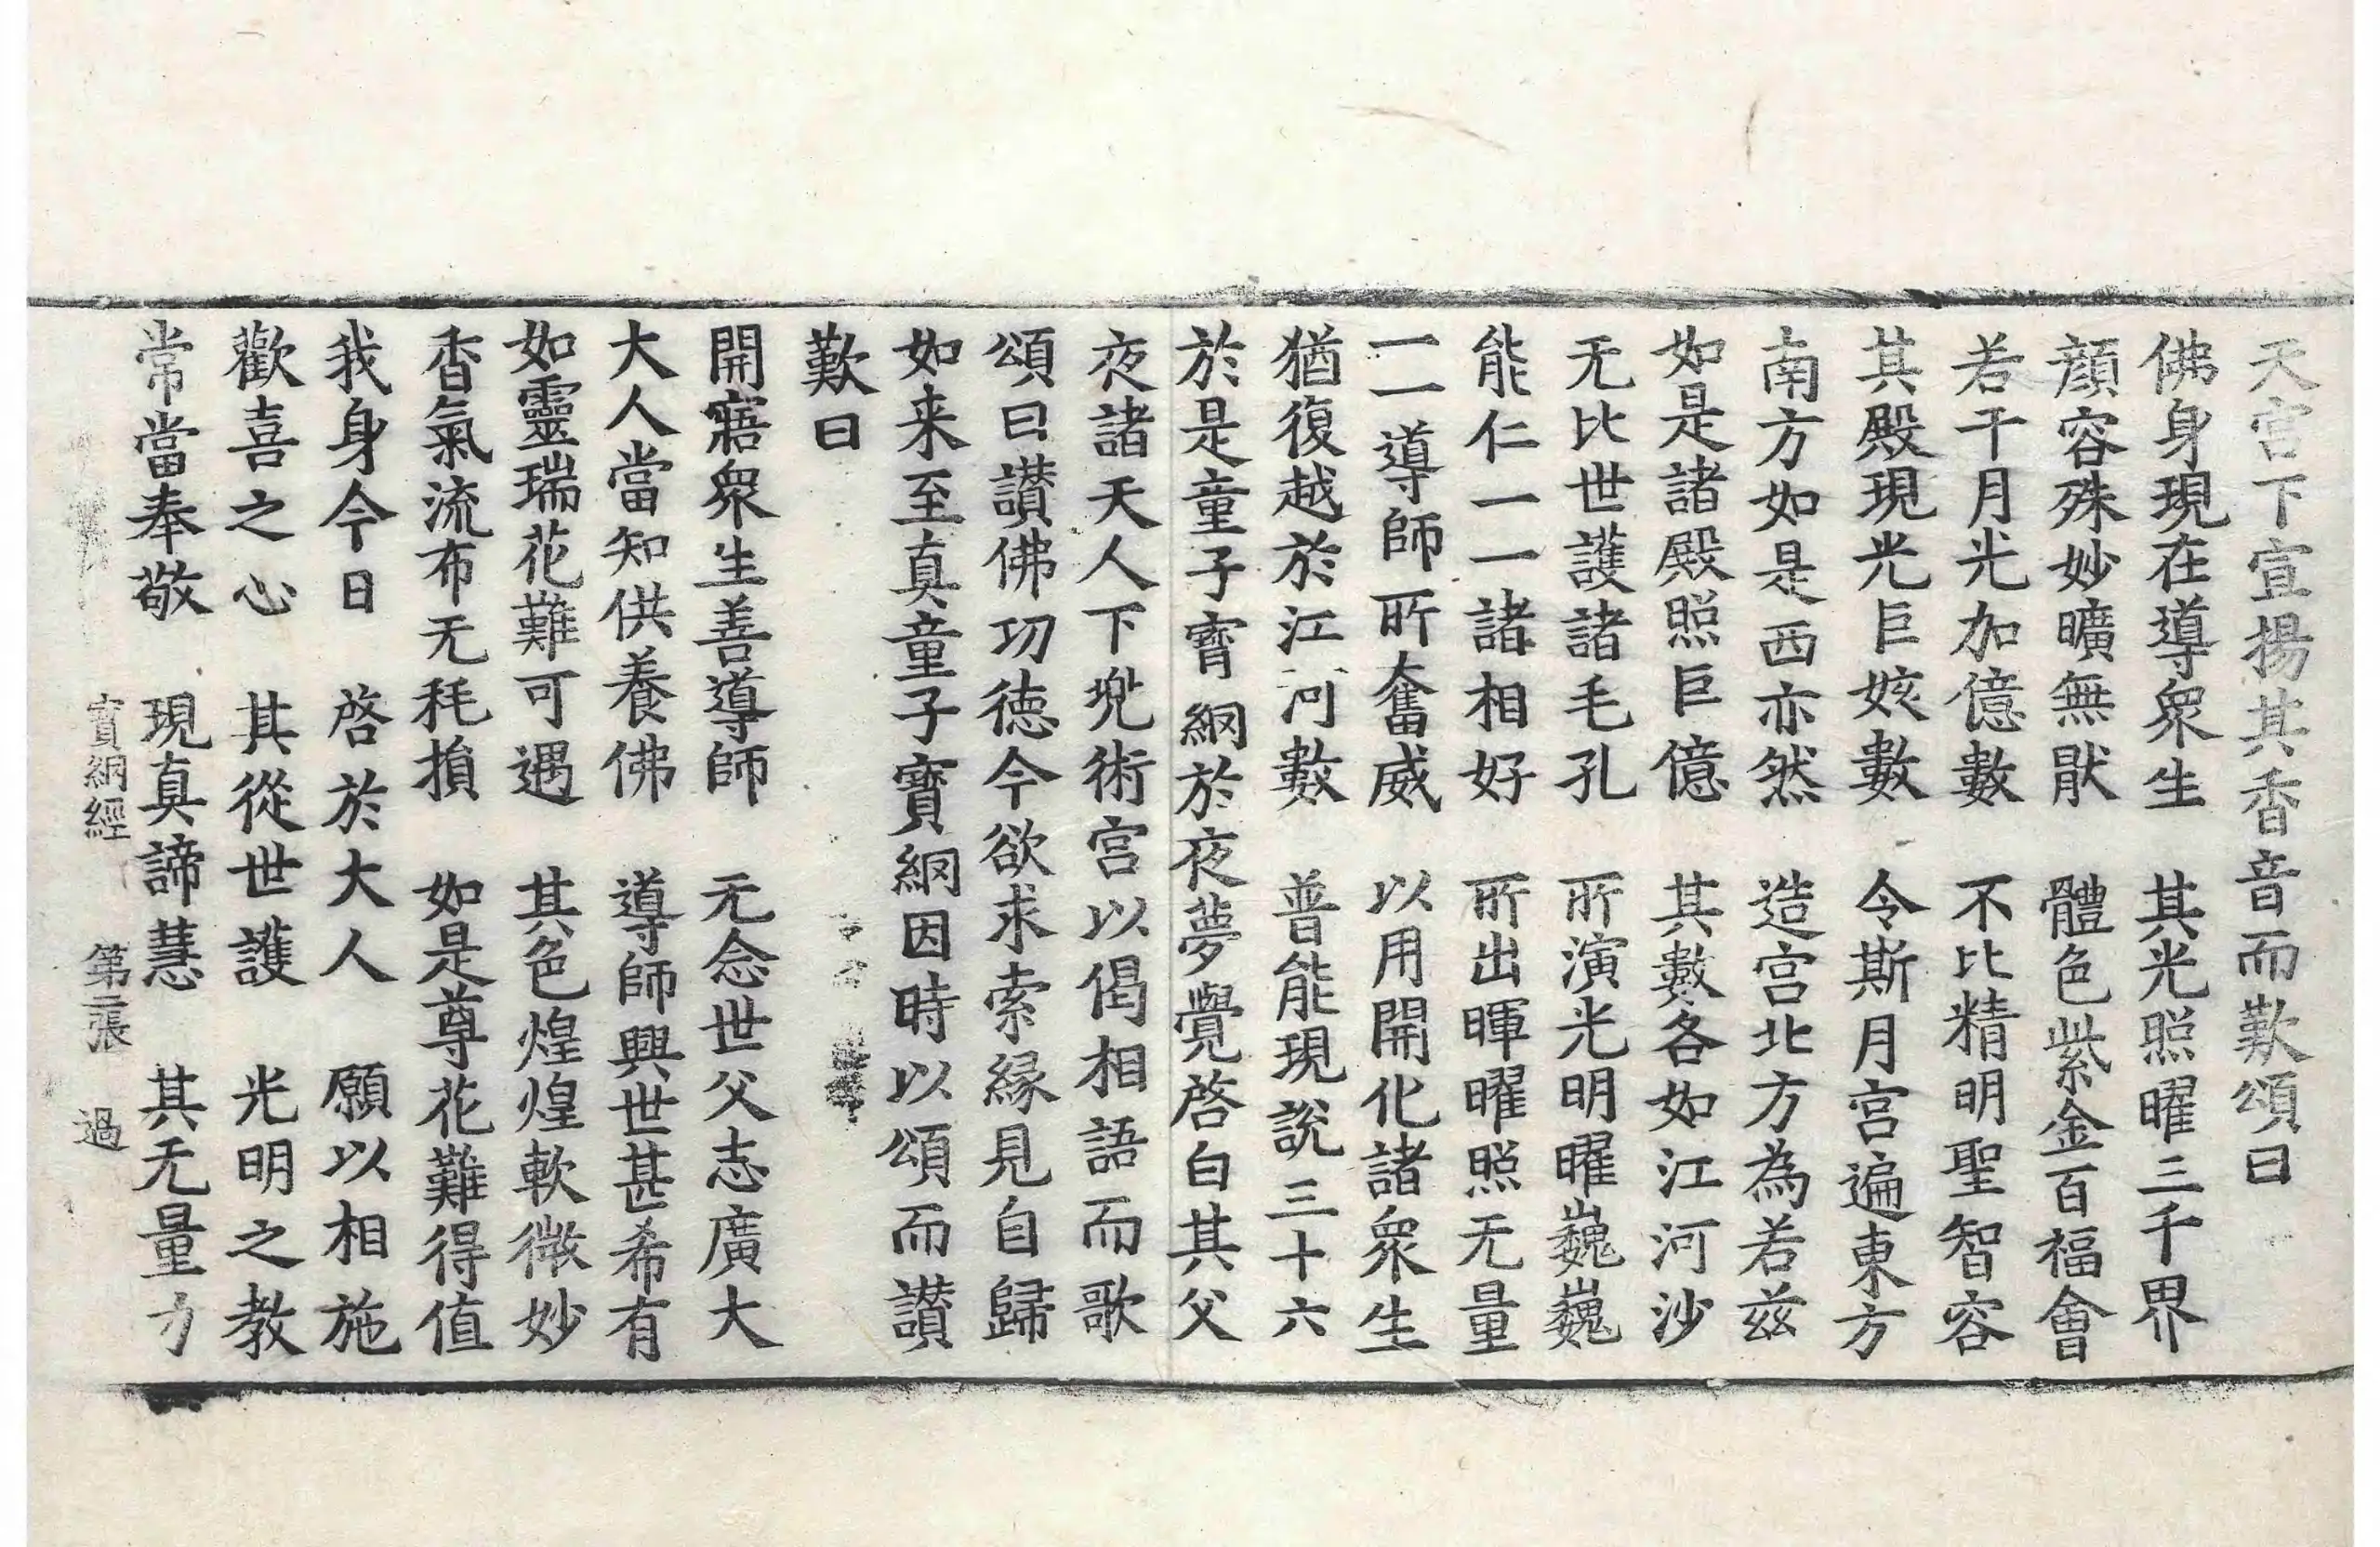 天宮下宣揚其香音而歎頌曰
佛身現在導眾生　其光照曜三千界
顔容殊妙曠無猒　體色紫金百福會
若干月光加億數　不比精明聖智容
其殿現光巨姟數　令斯月宮遍東方
南方如是西亦然　造宮北方為若茲
如是諸殿照巨億　其數各如江河沙
无比世護諸毛孔　所演光明曜巍巍
能仁一一諸相好　所出暉曜照无量
一一導師所奮威　以用開化諸眾生
猶復越於江河數　普能現說三十六
於是童子寳網於夜夢覺啓白其父
夜諸天人下兜術宮以偈相語而歌
頌曰讃佛功徳今欲求索縁見自歸
如来至真童子寶網因時以頌而讃
歎曰
開寤眾生善導師　无念世父志廣大
大人當知供養佛　導師興世甚希有
如靈瑞花難可遇　其色煌煌軟微妙
香氣流布无耗損　如是尊花難得值
我身今日　啓於大人　願以相施
歡喜之心　其從世護　光明之教
常當奉敬　現真諦慧　其无量力
寳網經　第二張　過